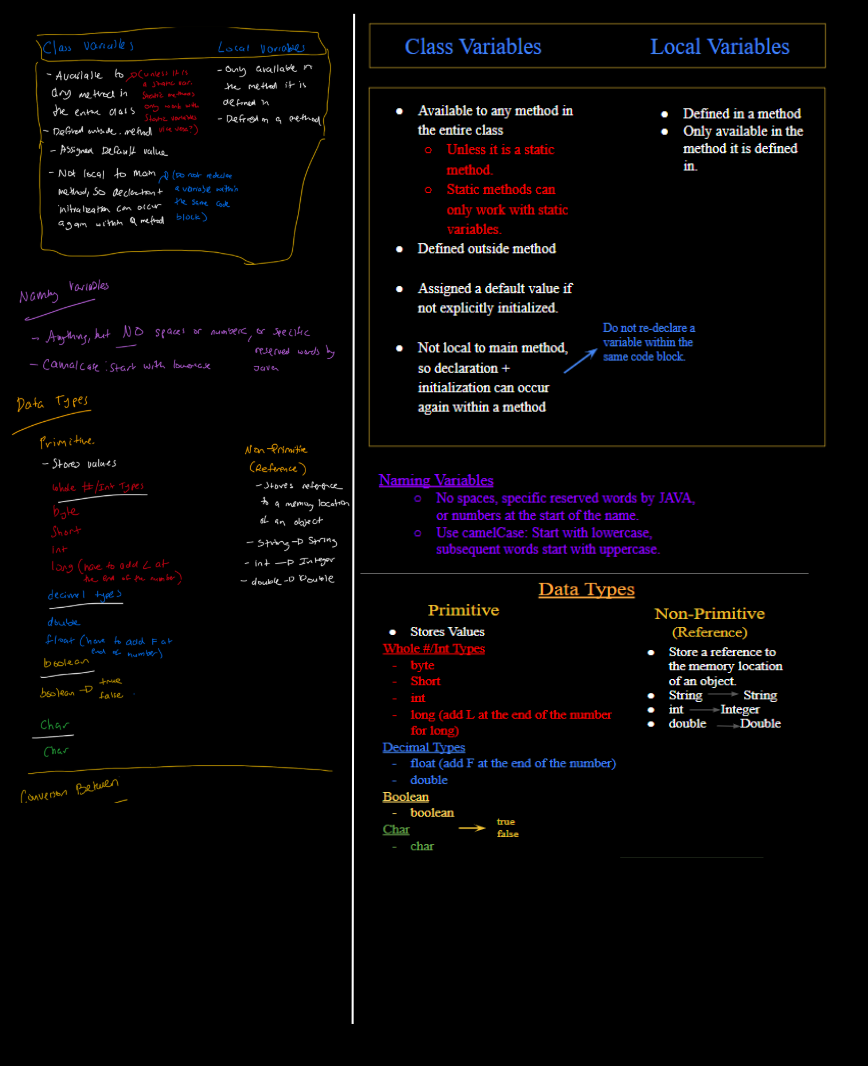 Class Variables
Local Variables
- Available to
any method in
the entire class
(unless it is
a static one.
Static methods
only work with
static variables
vice versa?)
- Defined outside method
- Assigned Default value
- Not local to main
method, so declaration +
initialization can occur
again within a method
(Do not redeclare
a variable within
the same code
block)
- Only available in
the method it is
defined in
- Defined in a method
Naming Variables
- Anything, but NO spaces or numbers, or specific
reserved words by
Java
- Camalcase: start with lowercase
Data Types
Primitive
- Stores values
Whole #/Int Types
byte
Short
int
long (have to add L at
the end of the number)
decimal types
double
float (have to add F at
end of number)
boolean
boolean → true
false
Char
Char
Non-Primitive
(Reference)
- Stores reference
to a memory location
of an object
- String → String
- int → Integer
- double → Double
Conversion Between
Class Variables
Local Variables
● Available to any method in
the entire class
○ Unless it is a static
method.
○ Static methods can
only work with static
variables.
● Defined outside method
● Assigned a default value if
not explicitly initialized.
● Not local to main method,
so declaration +
initialization can occur
again within a method
Do not re-declare a
variable within the
same code block.
● Defined in a method
● Only available in the
method it is defined
in.
Naming Variables
○ No spaces, specific reserved words by JAVA,
or numbers at the start of the name.
○ Use camelCase: Start with lowercase,
subsequent words start with uppercase.
Data Types
Primitive
● Stores Values
Whole #/Int Types
- byte
- Short
- int
- long (add L at the end of the number
for long)
Decimal Types
- float (add F at the end of the number)
- double
Boolean
- boolean
true
false
Char
- char
Non-Primitive
(Reference)
● Store a reference to
the memory location
of an object.
● String → String
● int → Integer
● double → Double